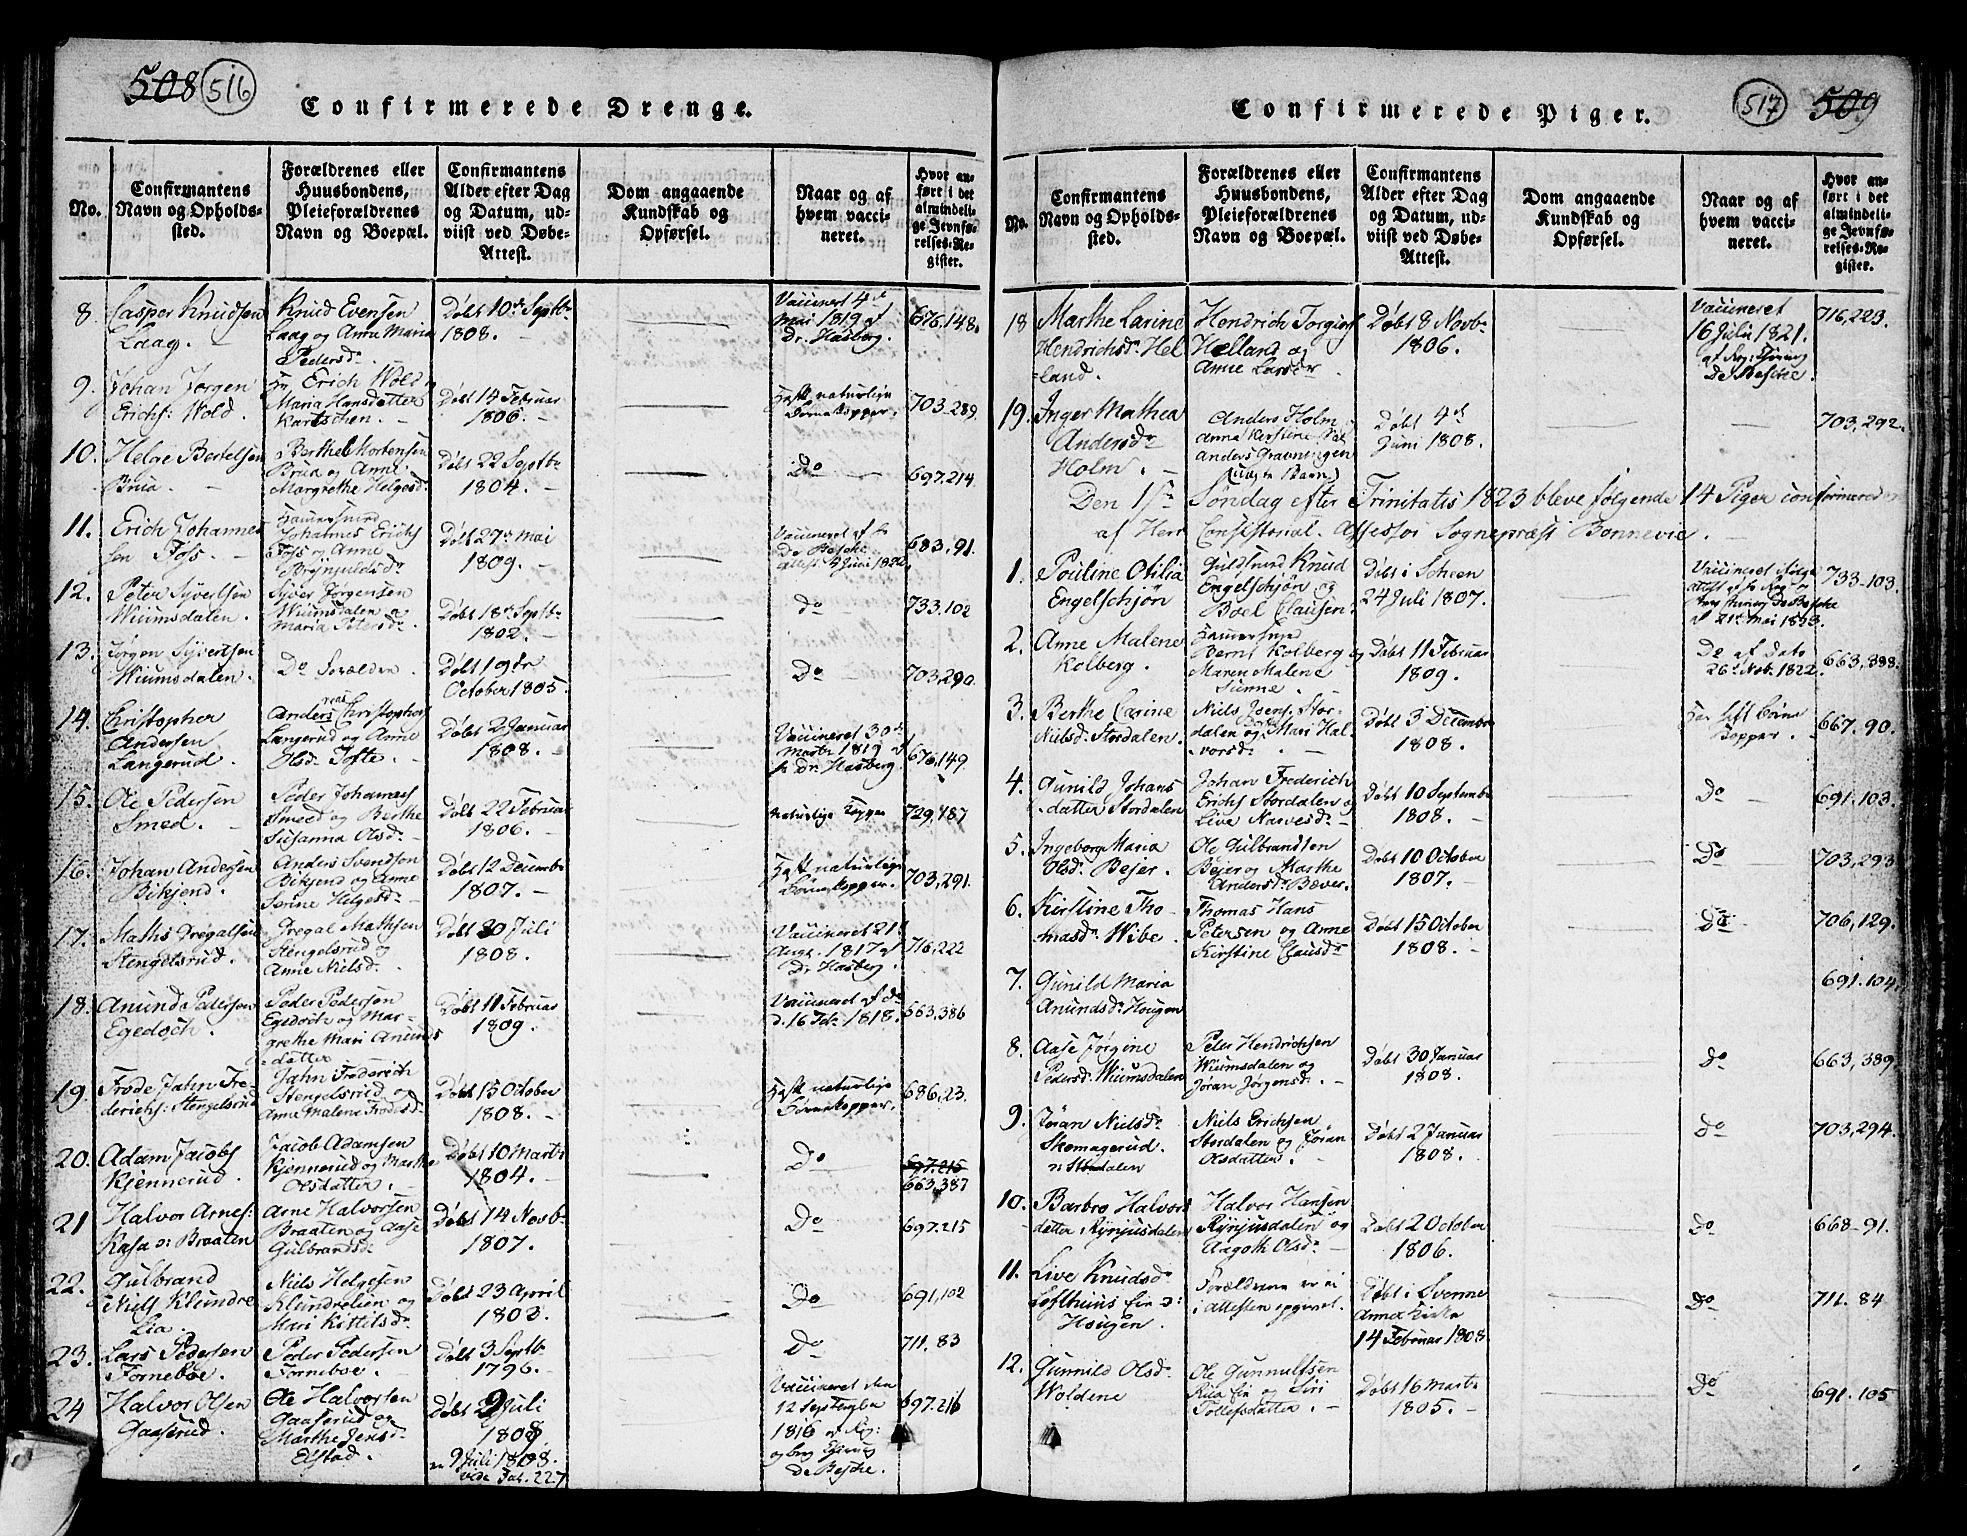 508 516
Confirmerede Drenge.
No.
Confirmantens
Navn og Opholds-
sted.
Forældrenes eller
Huusbondens,
Pleieforældrenes
Navn og Boepæl.
Confirmantens
Alder efter Dag
og Datum, ud-
viist ved Døbe-
Attest.
Dom angaaende
Kundskab og
Opførsel.
Naar og af
hvem vacci-
neret.
Hvor an-
ført i det
almindeli-
ge Jevnfø-
relses-Re-
gister.
8 Casper Knudsen
Laag.
Knud Evensen
Laag og Anne Maria
Pedersd.
Døbt 10de Septb.
1808.
Vaccineret 4de
Mai 1819 af
Dr. Hasberg.
676,148.
9. Johan Jørgen
Erichs: Wold.
Hr. Erich Wold
Maria Hansdatter
Kartschen.
Døbt 14 Februar
1806.
Haft naturlige
Børnekopper.
703,289.
10. Helge Bertelsen
Brua.
Berthel Mortensen
Brua og Anne
Margrethe Helgesd.
Døbt 22 Septb.
1804.
Do
697.214
11. Erich Johannes
sen Foss.
Hammersmed
Johannes Erichs
Foss og Anne
Brynjuldsd.
Døbt 27de Mai
1809.
683,91.
12. Peter Syvertsen
Wiumsdalen.
Syver Jørgensen
Wiumsdalen og
Maria Petersd.
Døbt 18de Septb.
1802.
Do
733.102
13. Jørgen Syvertsen
Wiumsdalen.
Do Forældre.
Døbt 19de
October 1805.
Do
703,290.
14. Christopher
Andersen
Langerud.
Anders Christophers
Langerud og Anne
Olsd. Tofte.
Døbt 2 Januar
1808.
Vaccineret 30de
Marts 1819 af
Dr. Hasberg
676,149.
15. Ole Pedersen
Smed.
Peder Johannes
Smeed og Berthe
Susanna Olsd.
Døbt 22 Februar
1806.
naturlige Kopper
729,487
16. Johan Andersen
Bikjend.
Anders Svendsen
Bikjend og Anne
Serine Helgesd.
Døbt 12 Decembr.
1807.
Haft naturlige
Børnekopper.
703,291.
17. Maths Gregalsen
Stengelsrud.
Gregal Mathsen
Stengelsrud og
Anne Nielsd.
Døbt 30 Juli
1808.
Vaccineret 21.
Aug. 1817 af
Dr. Hasberg.
716,222
18. Amund Pedersen
Egedoch.
Peder Pedersen
Egedoch og Mar-
grethe Mari Amunds
datter
Døbt 11 Februar
1809.
Vaccineret af do
d. 16 Feb. 1818.
663,386
19. Frode Jahn Fre-
derichs: Stengelsrud
Jahn Frederich
Stengelsrud og
Anne Malene Frodesd.
Døbt 15 October
1808.
Haft naturlige
Børnekopper.
686,23.
20. Adam Jacobs
Kjennerud.
Jacob Adamsen
Kjennerud og Marthe
Olsdatter.
Døbt 10 Marts
1804.
Do
697.215
663,387
21 Halvor Arnes:
Kasa ɔ: Braaten
Arne Halvorsen
Braaten og Aase
Gulbrandsd.
Døbt 14 Novb.
1807.
Do
697.215
22. Gulbrand
Niels Klundre
Lia.
Niels Helgesen
Klundrelien og
Mari Kittilsd.
Døbt 23 April
1803.
Do
691,102
23. Lars Pedersen
Forneboe.
Peder Pedersen
Forneboe.
Døbt 3 Septb.
1796.
Do
711.83
24 Halvor Olsen
Gaaserud.
Ole Halvorsen
Gaaserud og
Marthe Jensd.
Elstad.
Døbt 9 Juli
1808
9 Juli 1808.
vide Pag. 227
Vaccineret den
12 Septembr
1816 af Rg:
697.216
517 509
Confirmerede Piger.
No.
Confirmantens
Navn og Opholds-
sted.
Forældrenes eller
Huusbondens,
Pleieforældrenes
Navn og Boepæl.
Confirmantens
Alder efter Dag
og Datum, ud-
viist ved Døbe-
Attest.
Dom angaaende
Kundskab og
Opførsel.
Naar og af
hvem vacci-
neret.
Hvor an-
ført i det
almindeli-
ge Jevnfø-
relses-Re-
gister.
18 Marthe Larine
Hendrichsd. Hel
land.
Hendrich Torgiers
Helland og
Anne Larsdr
Døbt 8 Novb.
1806.
Vaccineret
16 Juli 1821.
De Besche.
716,223.
19. Inger Mathea
Andersd.
Holm.
Anders Holm
Anna Kirstine
Anders Gravningen
(uægte Barn)
Døbt 4de
Juni 1808.
703,292.
Den 15de Søndag efter Trinitatis 1823 bleve følgende 14 Piger confirmerede
af Herr Consistorial-Assessor Sognepræst Bonnevie.
1. Pouline Otilia
Engelschjøn
Guldsmed Knud
Engelschjøn og
Boel Clausen.
Døbt i Scheen
24 Juli 1807.
733-103.
2. Anne Malene
Kolberg.
Hammersmed
Bernt Kolberg og
Maren Malene
Døbt 11 Februar
1809.
Do af Dato
26 Nov. 1822.
663,388.
3. Berthe Carine
Nielsd. Stordalen.
Niels Jsens. Stor-
dalen og Mari Hal
vorsd.
Døbt 3 Decembr
1808.
Har haft Børne
Kopper.
667.90.
4. Gunild Johans
datter Stordalen
Johan Frederich
Erichs Stordalen og
Live Narvesd.
Døbt 10 Septembr
1808.
Do
691.103.
5. Ingeborg Maria
Olsd. Bejer.
Ole Gulbrandsen
Bejer og Marthe
Andersd. Bæver.
Døbt 10 October
1807.
Do
703,293
6. Kirstine Tho
masd. Wibe.
Thomas Hans
Petersen og Anne
Kirstine Clausd.
Døbt 15 October
1808.
Do
706,129.
7. Gunild Maria
Amundsd. Hougen
691.104
8. Aase Jørgine
Pedersd. Wiumsdalen
Peter Hendrichsen
Wiumsdalen og
Jøran Jørgensd.
Døbt 30 Januar
1808.
Do
663,389
9. Jøran Nielsd.
Skomagerud.
ɔ: Stordalen
Niels Erichsen
Stordalen og Jøran
Olsdatter.
Døbt 2 Januar
1808.
Do
703,294.
10. Barbro Halvors
datter Rynjusdalen
Halvor Hansen
Rynjusdalen og
Aagoth Olsd.
Døbt 2 October
1806.
Do
668-91.
11. Live Knudsd.
Lofthuus Eie ɔ:
Hougen.
Forældrene er ei
i Attesten opgivet.
Døbt i Svenne
Anna Kirke
14 Februar 1808
Do
711.84
12. Gunnild Olsd.
Woldene
Ole Gunnulfsen
Rua Eie og Siri
Tollefsdatter.
Døbt 16 Marts
1805.
Do
691.105